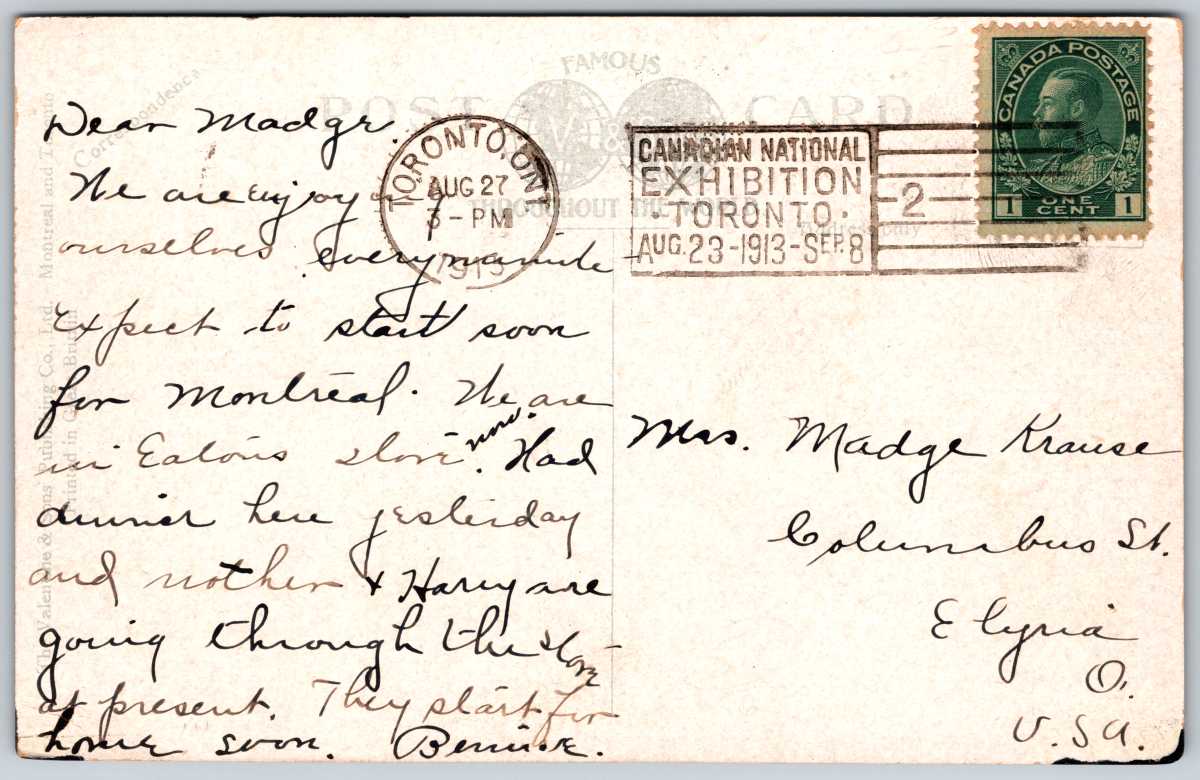 FAMOUS
POST CARD
THROUGHOUT THE
Correspondence
Valentine & Sons Publishing Co., Ltd. Montreal and Toronto
Printed in Great Britain
TORONTO, ONT
AUG 27
3 - PM
1913
CANADIAN NATIONAL
EXHIBITION
· TORONTO ·
AUG. 23 - 1913 - SEP. 8
2
CANADA POSTAGE
1 ONE CENT 1
Dear Madge.
We are enjoying
ourselves every minute
Expect to start soon
for Montreal. We are
in Eatons store now. Had
dinner here yesterday
and mother + Harry are
going through the store
at present. They start for
home soon. Bernice.
Mrs. Madge Krause
Columbus St.
Elyria
O.
U.S.A.